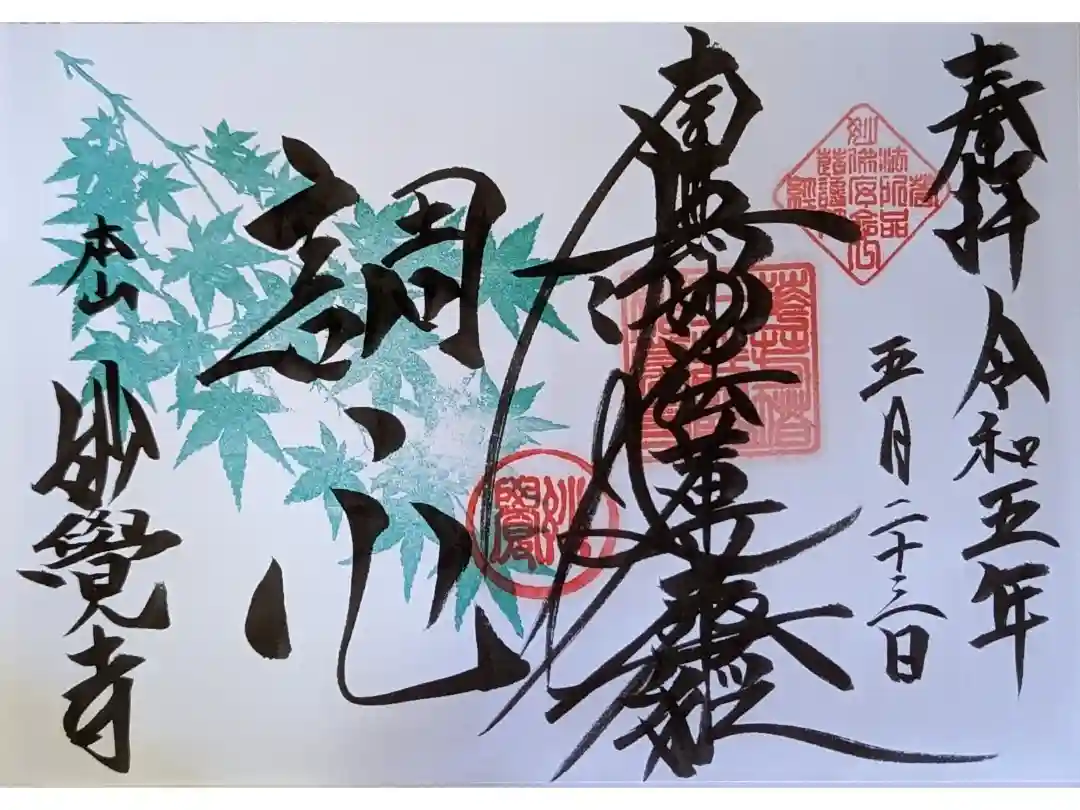 奉拝
令和五年
五月二十三日
南無妙法蓮華経
調心
本山
妙覺寺
妙覺